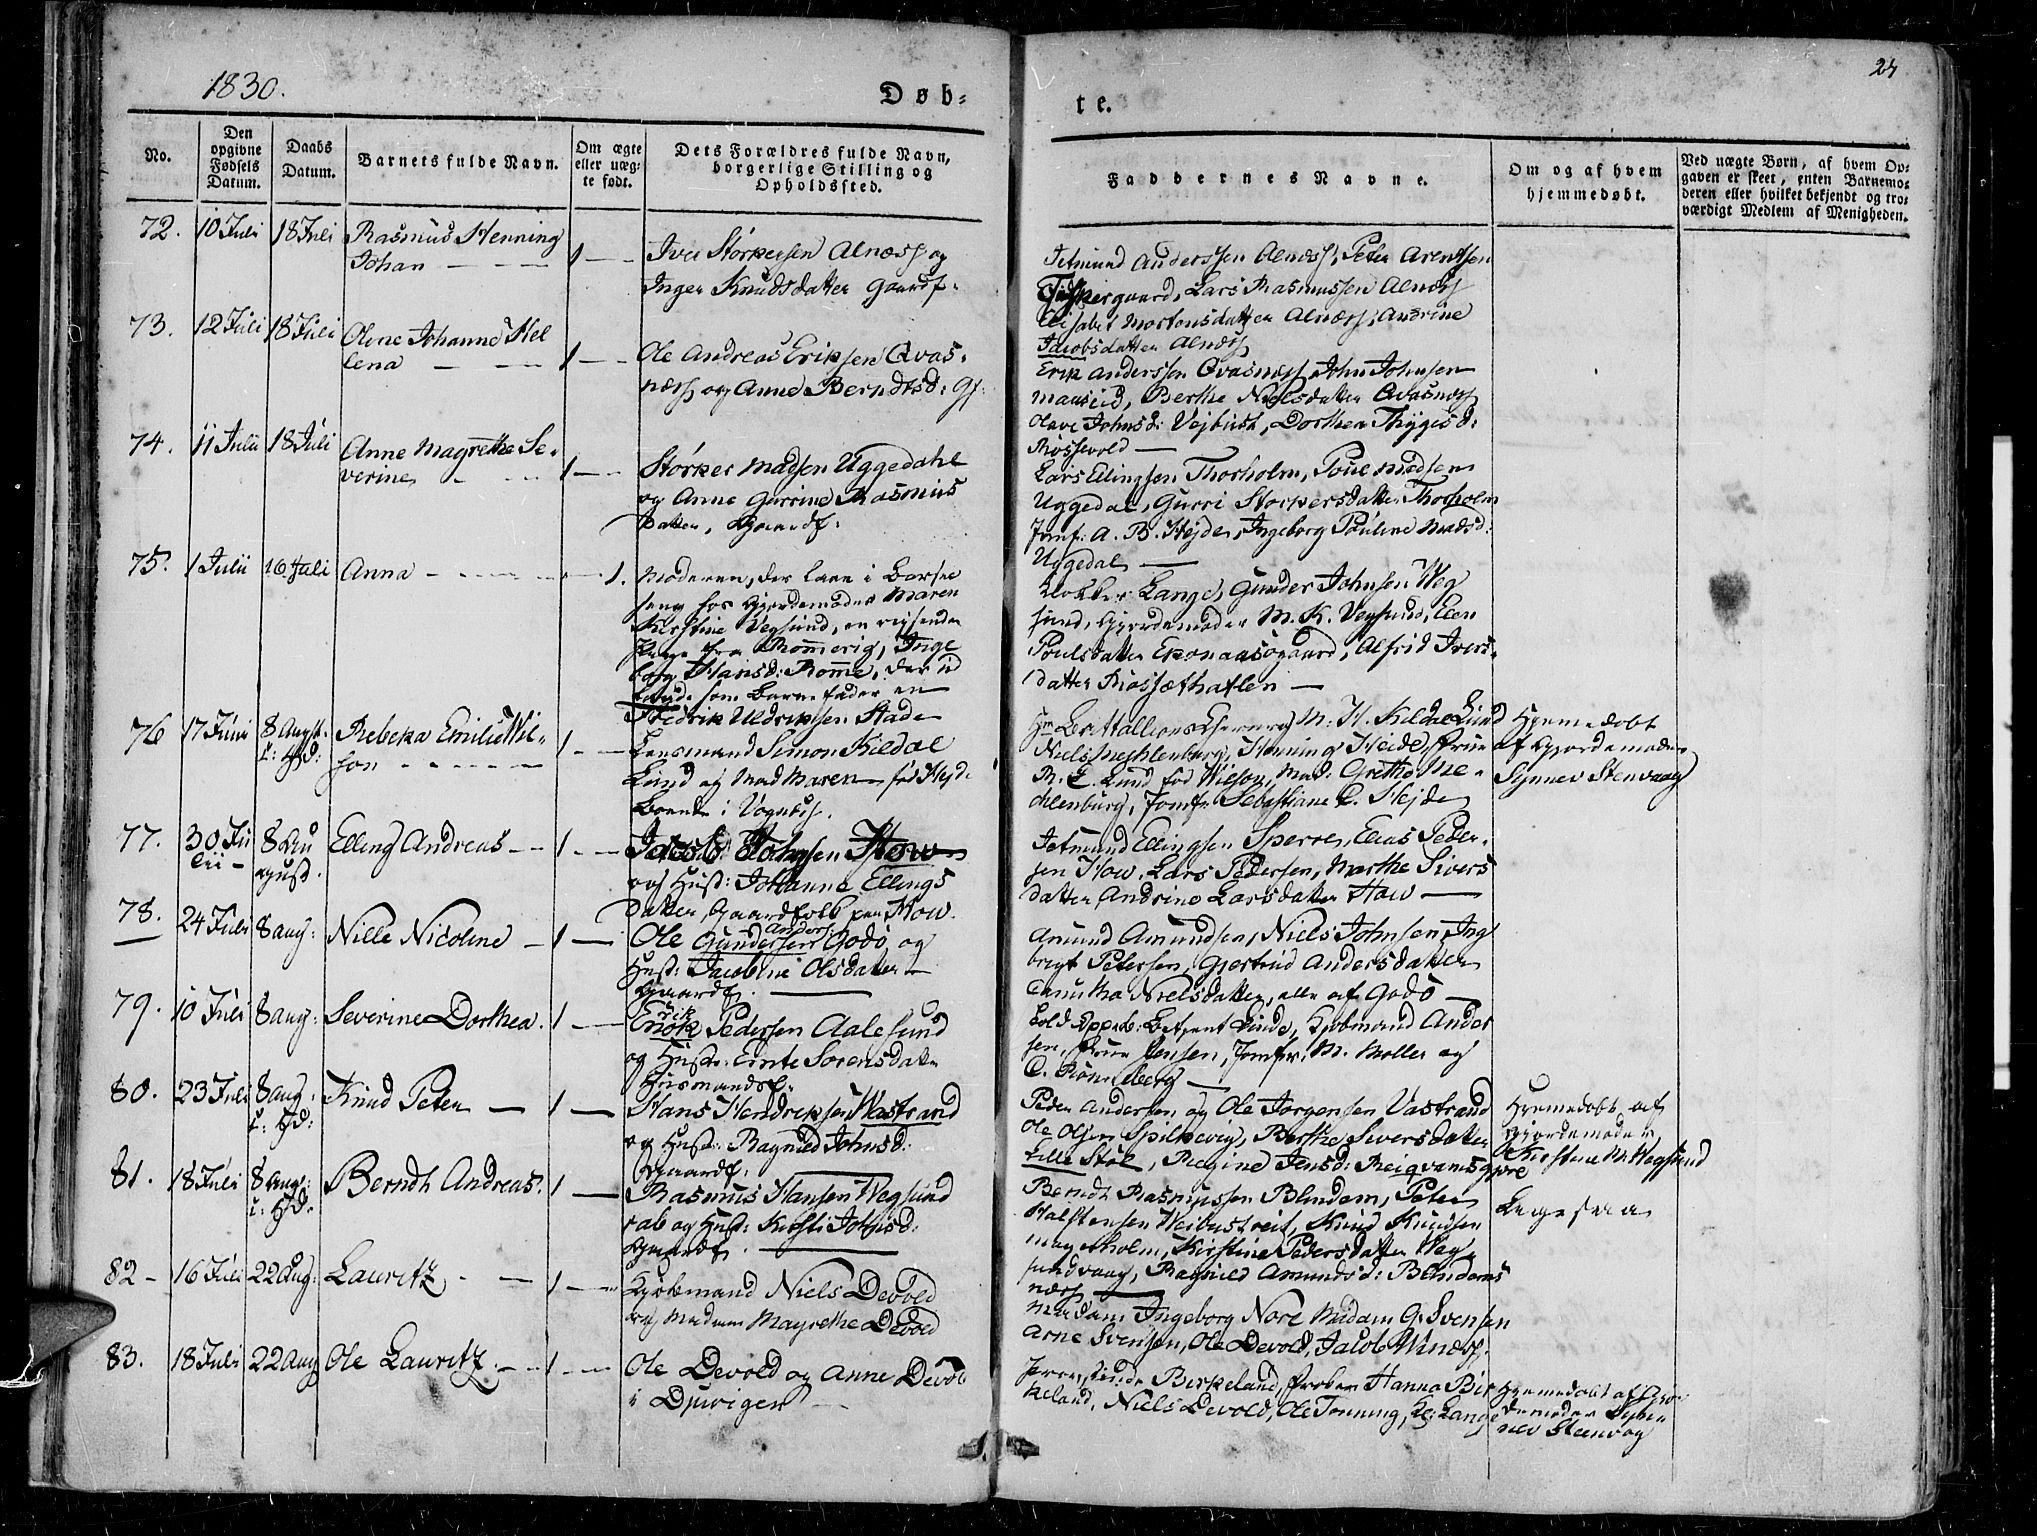 1830.
Døb-
te.
24
No.
Den opgivne Fødsels Datum.
Daabs Datum.
Barnets fulde Navn.
Om ægte eller uæg-te født.
Dets Forældres fulde Navn, borgerlige Stilling og Opholdsfted.
Faddernes Navne.
Om og af hvem hjemmedøbt.
Ved uægte Børn, af hvem Op-
gaven er skeet, enten Barnemo-
deren eller hvilket bekjendt og tro-
værdigt Medlem af Menigheden.
72. 10 Juli 18 Juli Rasmus Henning
Johan 1
Iver Størkersen Alnæss og
Inger Knudsdatter Gaardf.
Jetmund Anderssen Alnæss, Peter Arentsen
Lars Rasmussen Alnæss
Elisabet Mortensdatter Alnæss, Andrine
Jacobsdatter Alnæss
73. 12 Juli 18 Juli Olene Johanne Hel
lena 1
Ole Andreas Eriksen Qvas-
næss og Anne Berndtsd: Gf:
Erik Anderssen Qvasnæss, John Johnsen
Maaseid, Berthe Nielsdatter Qvasnæss
Olave Johnsd: Vejbust, Dorthea Thygesd:
Røssevold
74. 11 Julii 18 Juli Anne Magrethe Se-
verine 1
Størker Madsen Uggedahl
og Anne Gurrine Rasmus
datter, Gaardf:
Lars Ellingsen Thorholm, Poul Madsen
Uggedal, Gurri Størkersdatter Thorholm
Jomf: A. B. Hejde, Ingeborg Pouline Madsd:
Uggedal
75. 1 Julii 16 Juli Anna 1.
Moderen, der laae i Barsel
seng hos Gjordemoder Maren
Kirstine Vegsund, en reisende
fra Rommerig, Inge
borg Hansd: Romme, der ud
lagde som Barnefader en
Fredrik Uldriksen Stade
Klokker Lange, Gunder Johnsen Weg
sund, Gjordemoder M. K. Vegsund, Elen
Poulsdatter Eikenaasogaard, Alfrid Ivers-
datter Røssæthatlen
76 17 Juni 8 August
i: Hd:
Rebeka Emilie Wil-
son 1
Lensmand Simon Kildal
Lund og Mad Maren født Hejde
boende i Vegnæs.
M. H. Kildal Lund
Niels Mechlenburg, Henning Heide, Frue
R. E. Lund fød Wilson, Mad. Grethe Me-
chlenburg, Jomfr Sebastiane C. Hejde
Hjemmedøbt
af Gjordemoder
Synnev Stenvaag
77. 30 Ju
lii
8 Au
gust.
Elling Andreas 1
Jacob Johnsen How
og Hust: Johanne Ellings
datter, Gaardfolk paa How.
Jetmund Ellingsen Sperre, Elias Peder-
sen How, Lars Pedersen, Marthe Sivers
datter, Andrine Larsdatter How
78. 24 Juli 8 aug: Nille Nicoline 1
Anders:
Ole Gundersen Godø og
Hust: Jacobine Olsdatter
Gaardf.
Amund Amundsen, Niels Johnsen, Ing
brigt Petersen, Gjertrud Andersdatter
Nielsdatter, alle af Godø
79. 10 Juli 8 aug: Severine Dorthea. 1
Erik
Enok Pedersen Aalesund
og Hust: Ernte Sørensdatter
Husmandsf.
Told Betjent Linde, Kjøbmand Ander
sen, Frue Jensen, Jomfr: M. Møller og
C. Rønneberg
80. 23 Juli 8 aug:
i: Hd:
Knud Peter 1
Hans Hendriksen Wastrand
og Hust: Ragnild Johnsd:
Gaardf:
Peder Andersen og Ole Jørgensen Vastrand
Ole Olsen Spilkevig, Berthe Siversdatter
Lille Støl, Regine Jensd: Reiqvamsgjære
Hjemmedøbt af
Gjordemoder
Kirstine M: Wegsund
81. 18 Juli 8 Aug:
i: Hd.
Berndt Andreas. 1
Rasmus Hansen Wegsund
rab og Hust: Kirsti Johnsd:
Gaardf.
Berndt Rasmussen Blindem, Peter
Halstensen Weibustreit, Knud Knudsen
Magerholm, Kirstine Pedersdatter Weg-
sundvaag, Ragnild Amundsd: Blindems
næss
Ligesaa
82 16 Juli 22 Aug: Lauritz 1
Kjøbmand Niels Devold
og Madam Magrethe Devold
Madam Ingeborg Nore Madam G. Svensen
Arne Svensen, Ole Devold, Jacob Windss.
83. 18 Juli 22 Aug Ole Lauritz 1
Ole Devold og Anne Devold
i Djuvigen
Birkeland, Frøken Hanna Bir
keland, Niels Devold, Ole Tonning, Kl: Lange
Hjemmedøbt af Gjor
demoder Syn
nev Steenvag